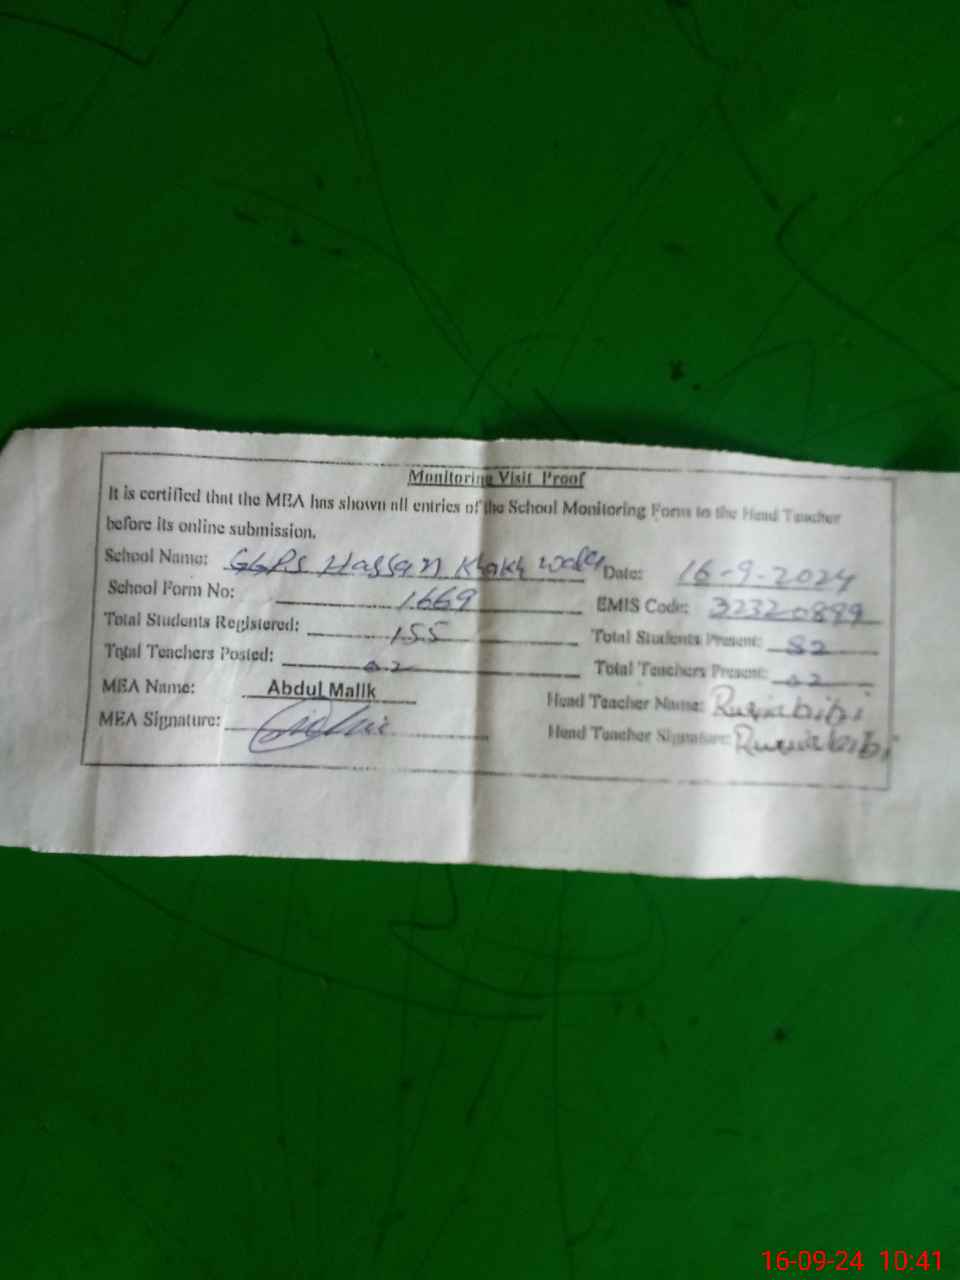 Monitoring Visit Proof
It is certified that the MEA has shown all entries of the School Monitoring Form to the Head Teacher
before its online submission.
School Name: GGPS Hassan Khakh wala Date: 16-9-2024
School Form No: 1669 EMIS Code: 32320899
Total Students Registered: 155 Total Students Present: 82
Total Teachers Posted: 02 Total Teachers Present: 02
MEA Name: Abdul Malik Head Teacher Name: bibi
MEA Signature: Head Teacher Signature: bibi
16-09-24 10:41